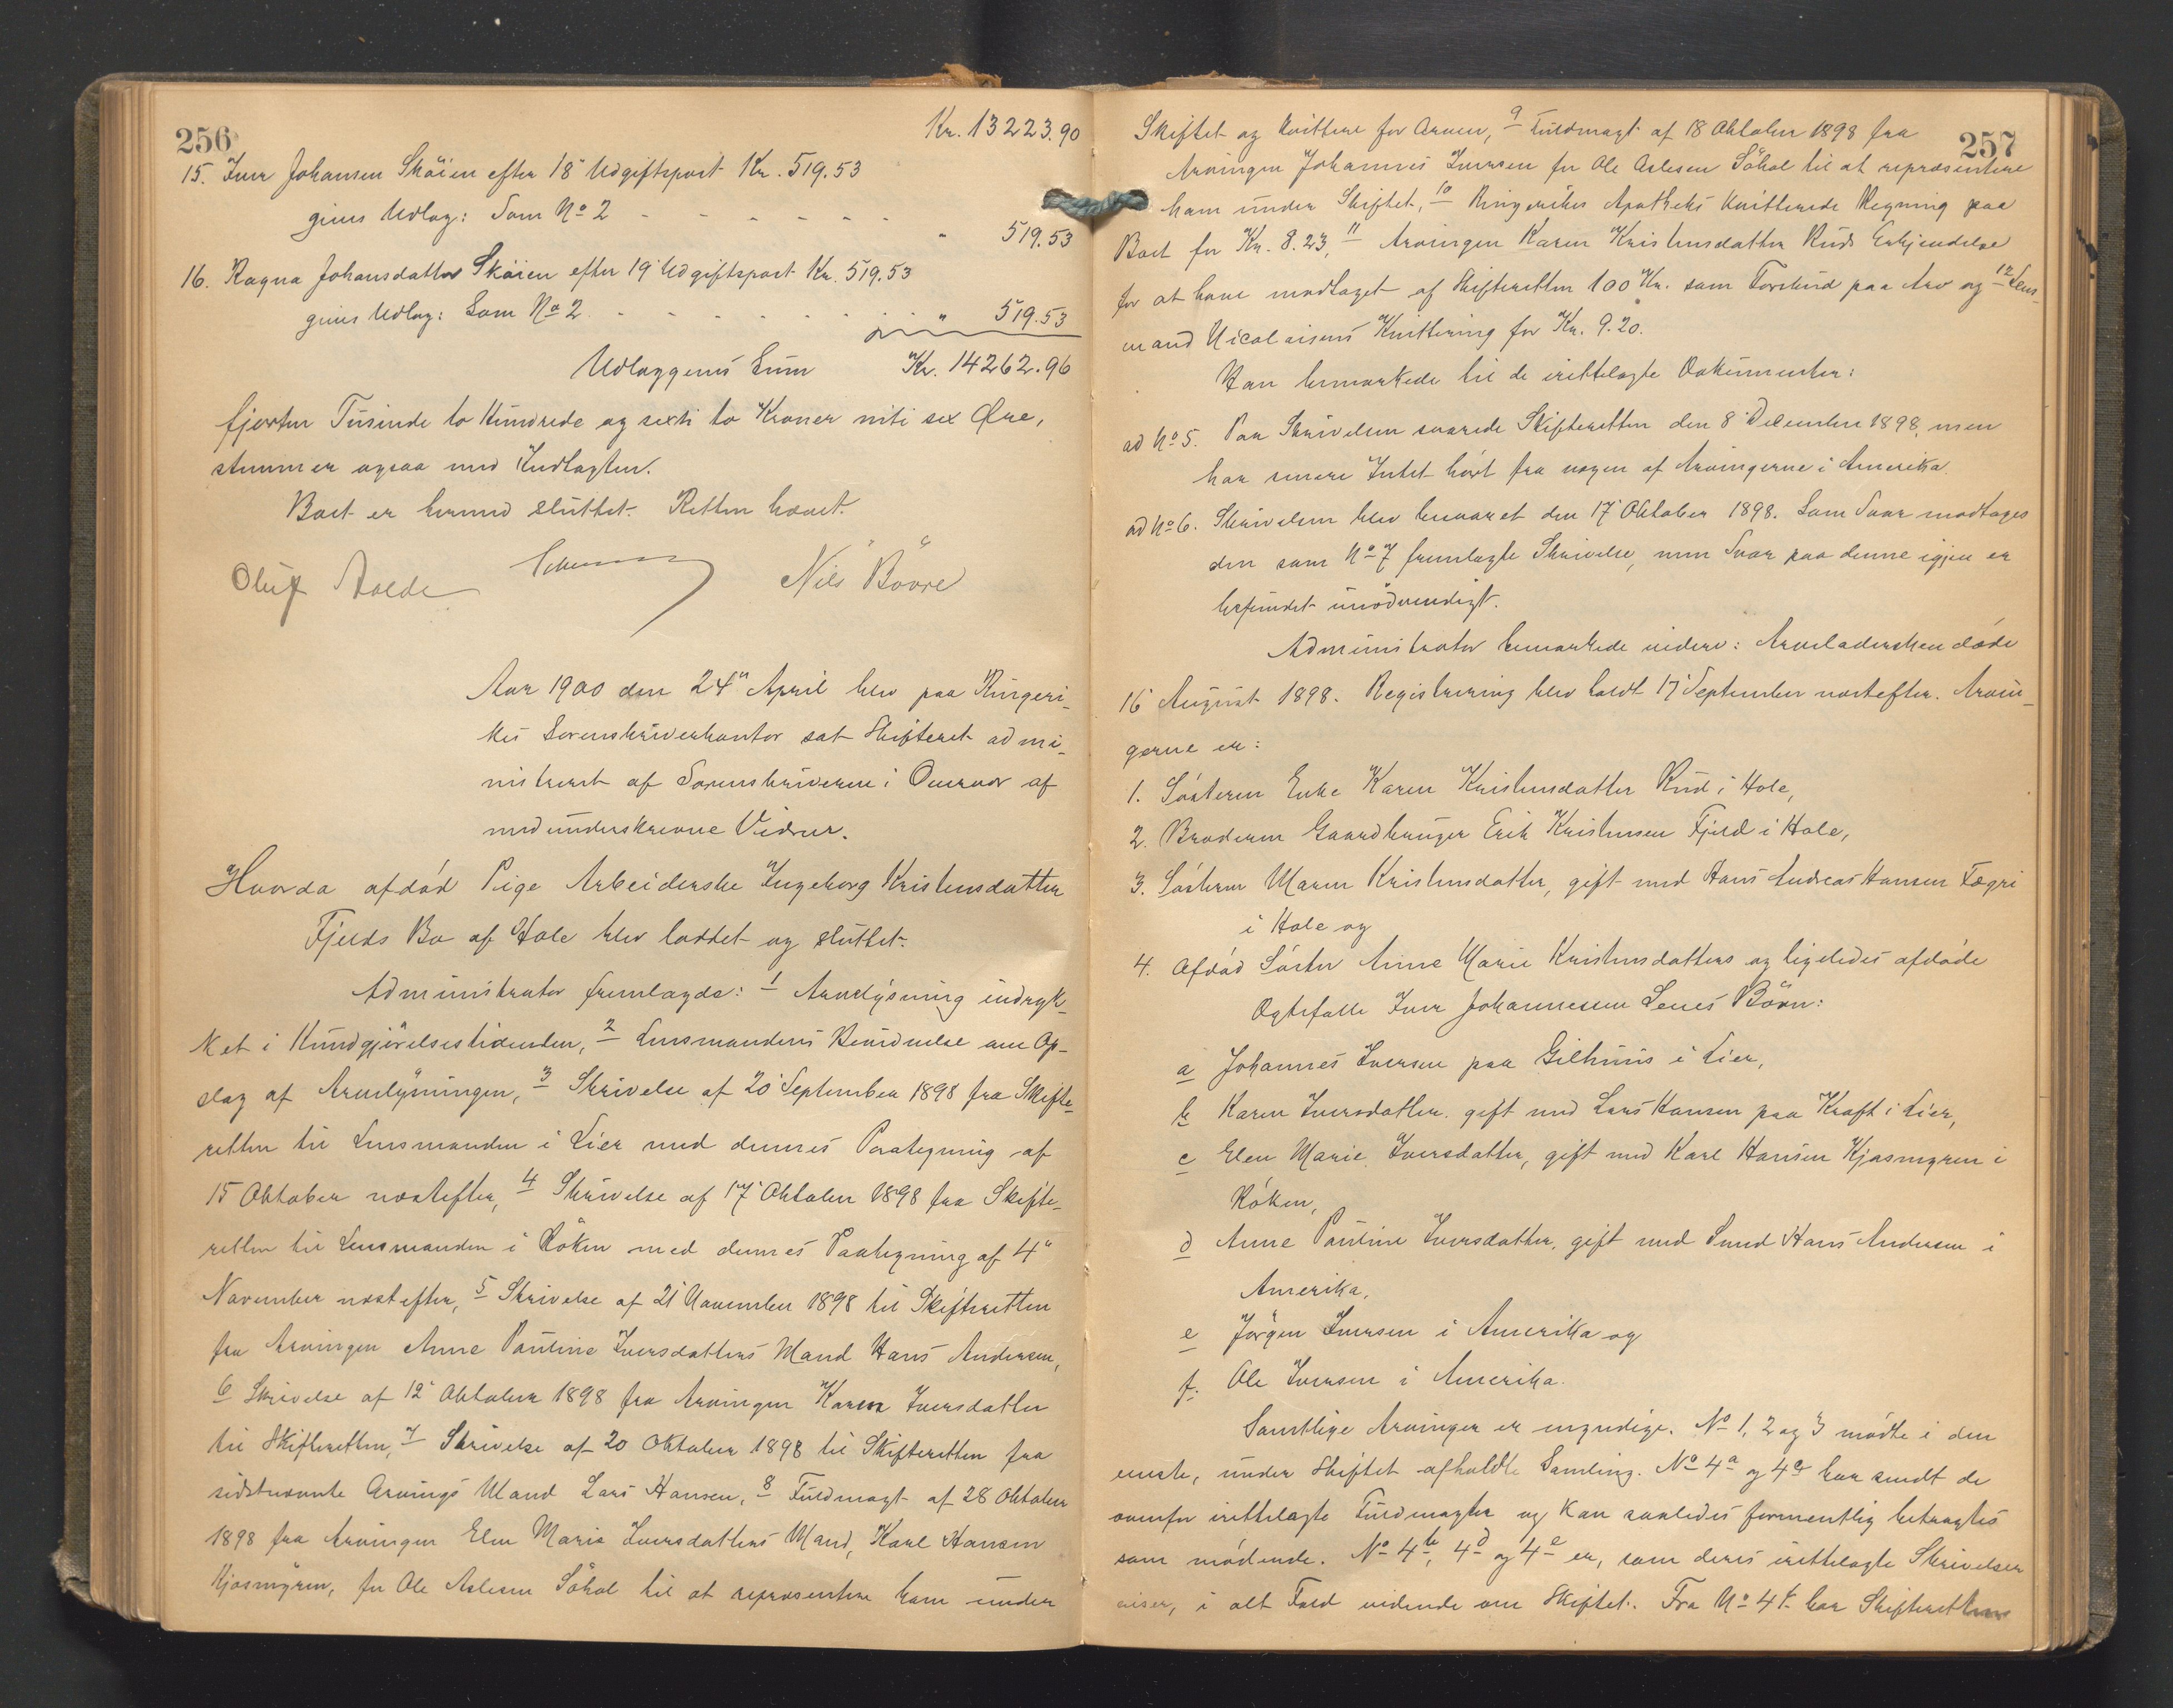 256
Kr. 13223.90
15. Iver Johansen Skøien efter 18' Udgiftspost Kr. 519.53
gives Udlæg: Som No 2 - - - - - - " 519.53
16. Ragna Johansdatter Skøien efter 19' Udgiftspost Kr. 519.53
gives Udlæg: Som No 2 - - - - - - " 519.53
Udlæggenes Sum Kr. 14262.96
fjorten Tusinde to Hundrede og sexti to Kroner niti sex Øre,
stemmer ogsaa med Indtægten.
Boet er hermed sluttet. Retten hævet.
Oluf Nils Bövre
Aar 1900 den 24" April blev paa Ringeri-
kes Sorenskriverkontor sat Skifteret admi-
nistreret af Sorenskriveren i Overvær af
medunderskrevne Vidner.
Hvorda afdød Pige Arbeiderske Ingeborg Kristensdatter
Fjelds Bo af Hole blev loddet og sluttet.
Administrator fremlagde: 1 Arvelysning indryk-
ket i Kundgjørelsestidenden, 2 Lensmandens Bevidnelse om Op-
slag af Arvelysningen, 3 Skrivelse af 20' September 1898 fra Skifte-
retten til Lensmanden i Lier med dennes Paategning af
15 Oktober næstefter, 4 Skrivelse af 17' Oktober 1898 fra Skifte-
retten til Lensmanden i Röken med dennes Paategning af 4"
November næstefter, 5 Skrivelse af 21' November 1898 til Skifteretten
fra Arvingen Anne Pauline Iversdatters Mand Hans Andersen,
6 Skrivelse af 12' Oktober 1898 fra Arvingen Karen Iversdatter
til Skifteretten, 7 Skrivelse af 20 Oktober 1898 til Skifteretten fra
sidstnævnte Arvings Mand Lars Hansen, 8 Fuldmagt af 28 Oktober
1898 fra Arvingen Elen Marie Iversdatters Mand, Karl Hansen
Kjøsmyren, for Ole Aslesen Søhol til at repræsentere ham under
257
Skiftet og kvittere for Arven, 9 Fuldmagt af 18 Oktober 1898 fra
Arvingen Johannes Iversen for Ole Aslesen Søhol til at repræsentere
ham under Skiftet, 10 Ringerikes Apotheks kvitterede Regning paa
Boet for Kr. 8.23, 11 Arvingen Karen Kristensdatter Ruds Erkjendelse
for at have modtaget af Skifteretten 100 Kr. som Forskud paa Arv og 12 Lens-
mand Nicolaisens Kvittering for Kr. 9.20.
Han bemærkede til de irettelagte Dokumenter:
ad No 5. Paa Skrivelsen svarede Skifteretten den 8' December 1898, men
har senere Intet hørt fra nogen af Arvingerne i Amerika.
ad No 6. Skrivelsen blev besvaret den 17' Oktober 1898. Som Svar modtoges
den som No 7 fremlagte Skrivelse, men Svar paa denne igjen er
befundet unødvendigt.
Administrator bemærkede videre: Arveladersken døde
16' August 1898. Registrering blev holdt 17' September næstefter. Arvin-
gerne er:
1. Søsteren Enke Karen Kristensdatter Rud i Hole,
2. Broderen Gaardbruger Erik Kristensen Fjeld i Hole,
3. Søsteren Maren Kristensdatter, gift med Hans Andreas Hansen Fægri
i Hole og
4. Afdød Søster Anne Marie Kristensdatters og ligeledes afdøde
Ægtefælle Iver Johannessen Leves Børn:
a Johannes Iversen paa Gilhuus i Lier,
b Karen Iversdatter, gift med Lars Hansen paa Kraft i Lier,
c Elen Marie Iversdatter, gift med Karl Hansen Kjøsmyren i
Röken,
d Anne Pauline Iversdatter, gift med Smed Hans Andersen i
Amerika,
e Jørgen Iversen i Amerika og
f. Ole Iversen i Amerika.
Samtlige Arvinger er myndige. No 1, 2 og 3 mødte i den
eneste, under Skiftet afholdte Samling. No 4a og 4c har sendt de
ovenfor irettelagte Fuldmagter og kan saaledes formentlig betragtes
som mødende. No 4b, 4d og 4e er, som deres irettelagte Skrivelser
viser, i alt Fald vidende om Skiftet. Fra No 4f har Skifteretten